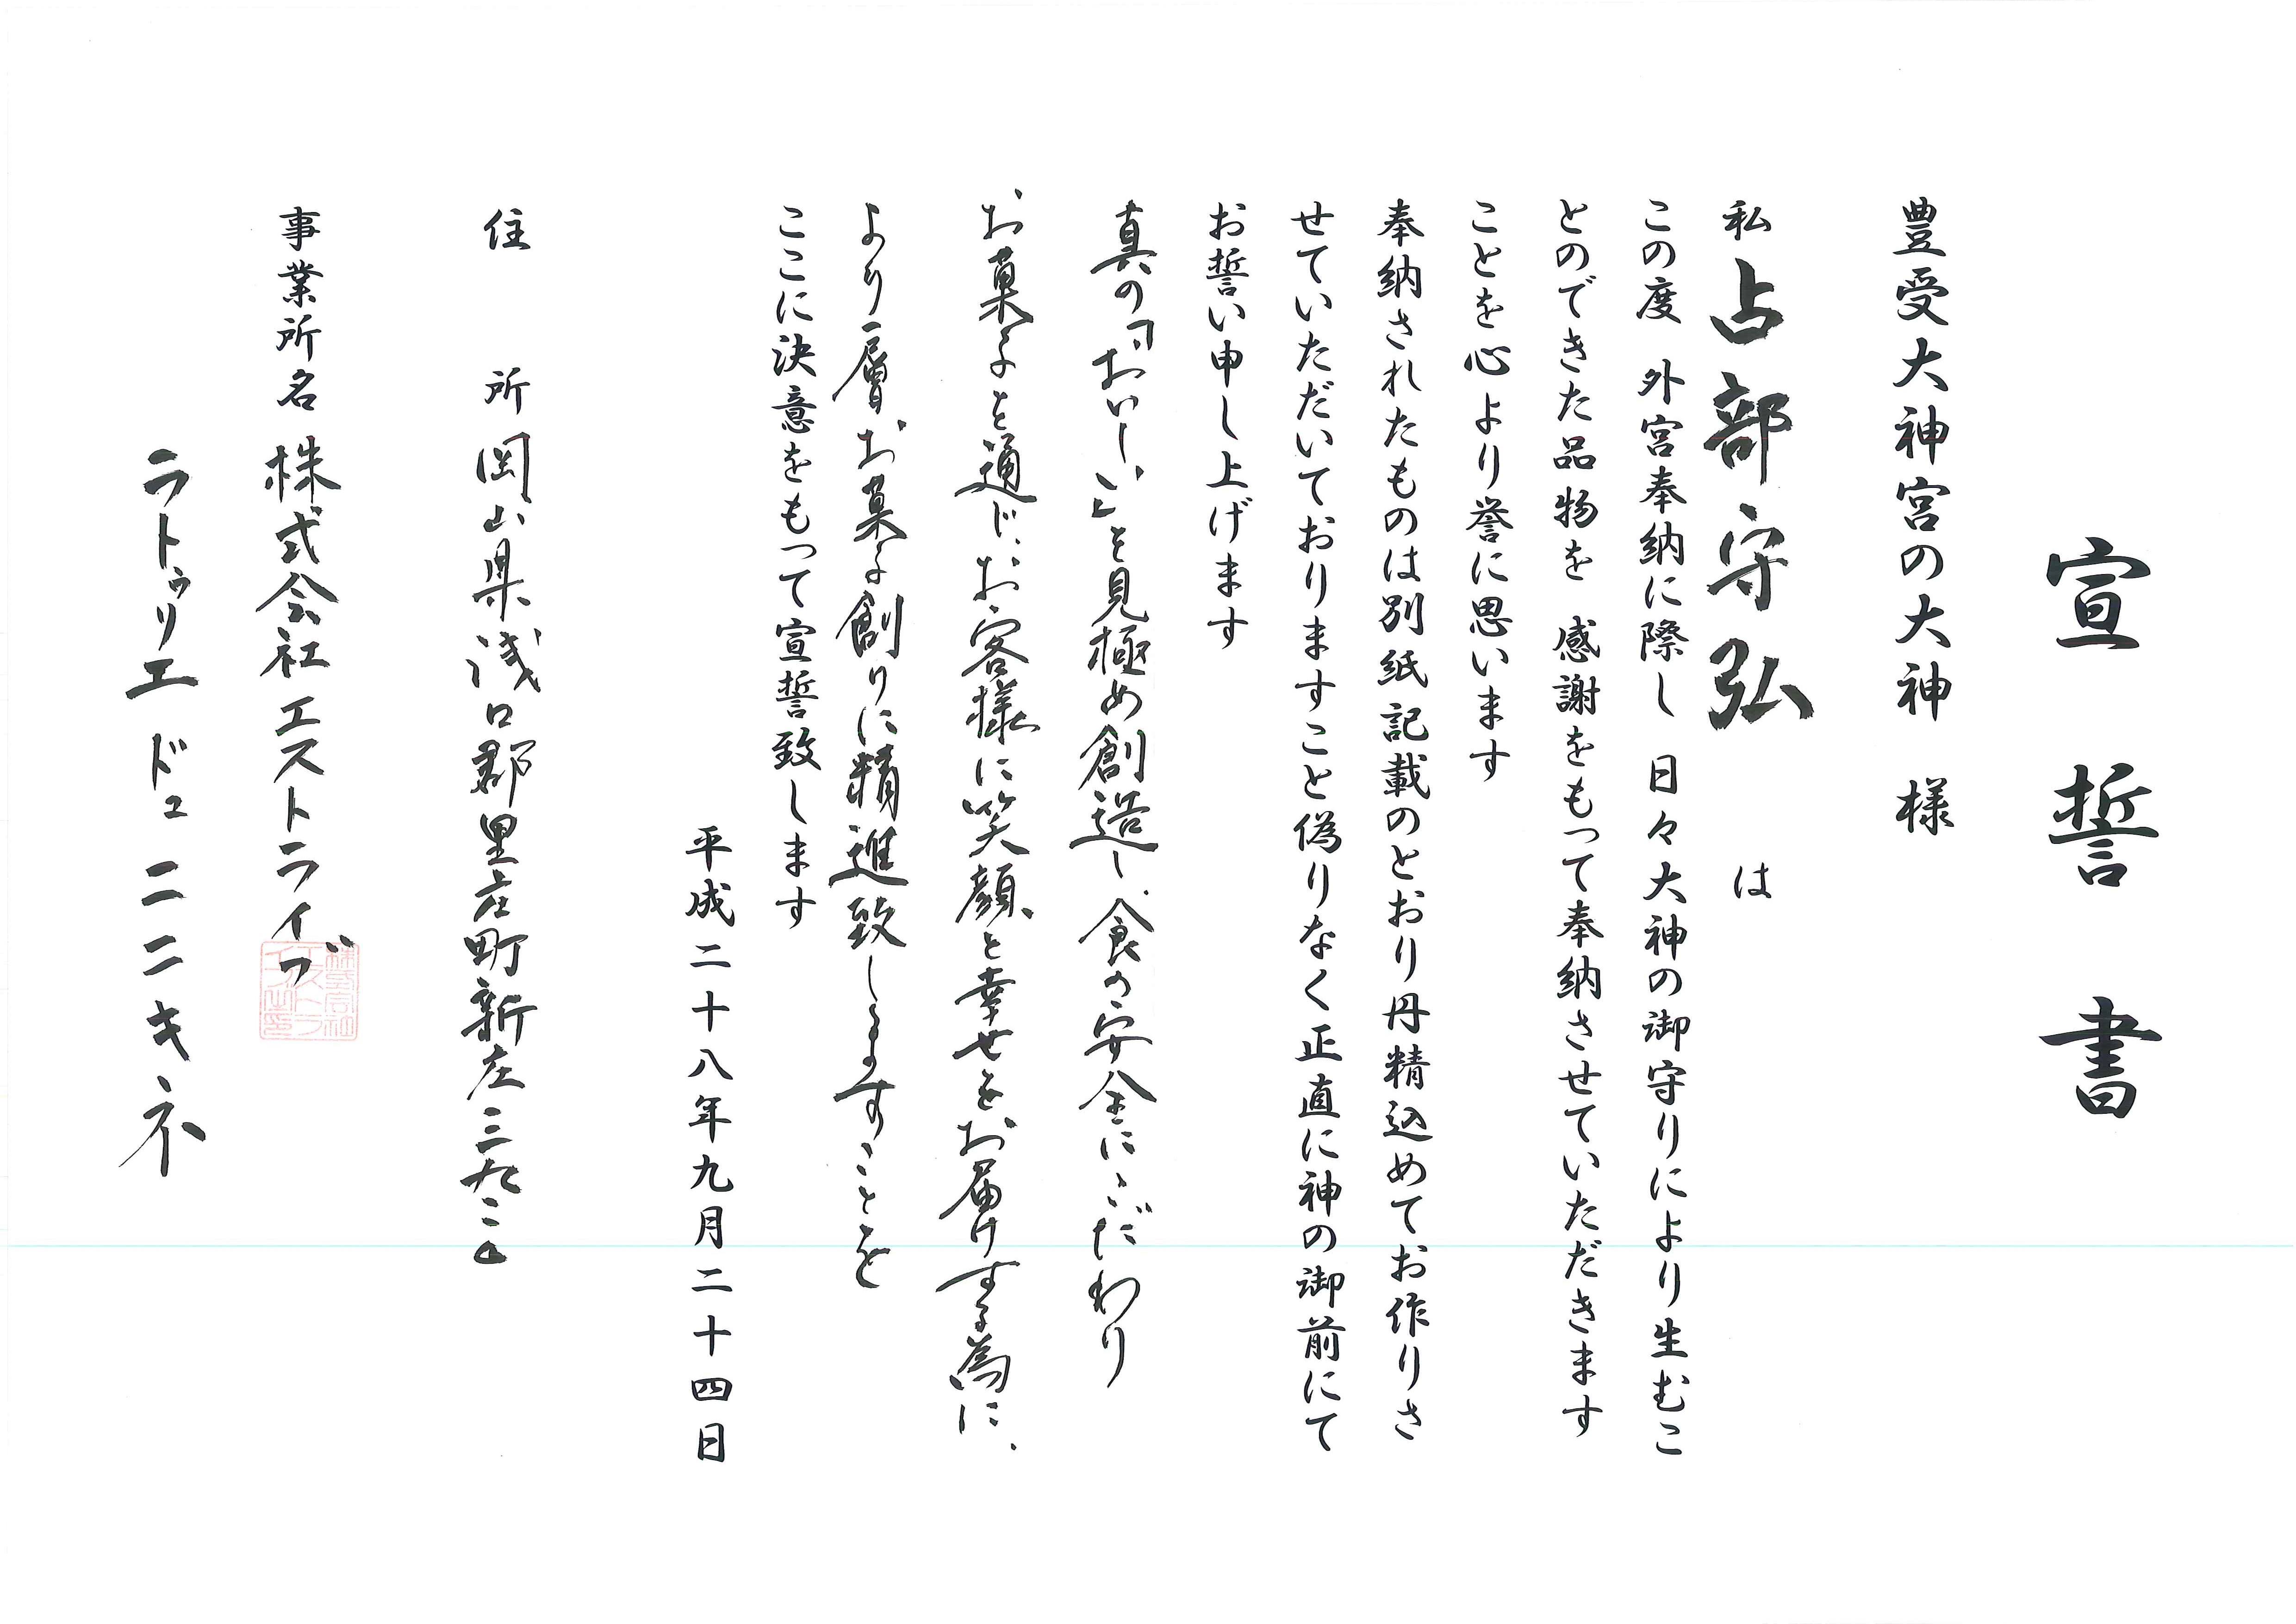 宣誓書
豊受大神宮の大神　様
私　占部守弘　は
この度　外宮奉納に際し　日々大神の御守りにより生むこ
とのできた品物を　感謝をもって奉納させていただきます
ことを心より誉に思います
奉納されたものは別紙記載のとおり丹精込めてお作りさ
せていただいておりますこと偽りなく正直に神の御前にて
お誓い申し上げます
真の「おいしい」を見極め創造し、食の安全にこだわり
お菓子を通じ、お客様に笑顔と幸せをお届けする為に、
より一層お菓子創りに精進致しますことを
ここに決意をもって宣誓致します
平成二十八年九月二十四日
住　所　岡山県浅口郡里庄町新庄三九二〇
事業所名　株式会社エストライブ
ラトゥリエ ドュ ニニキネ